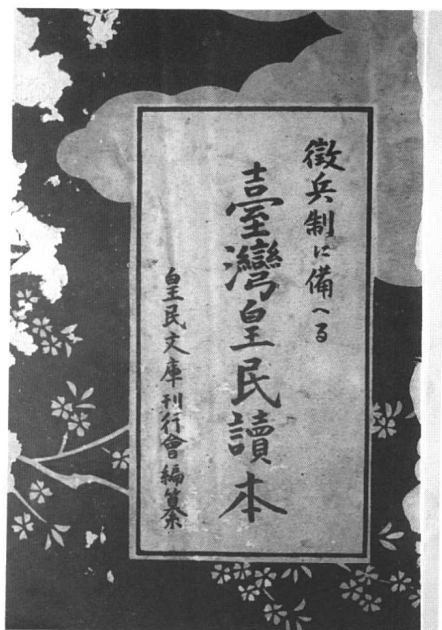 徵兵制に備へる
臺灣皇民讀本
皇民文庫刊行會編纂